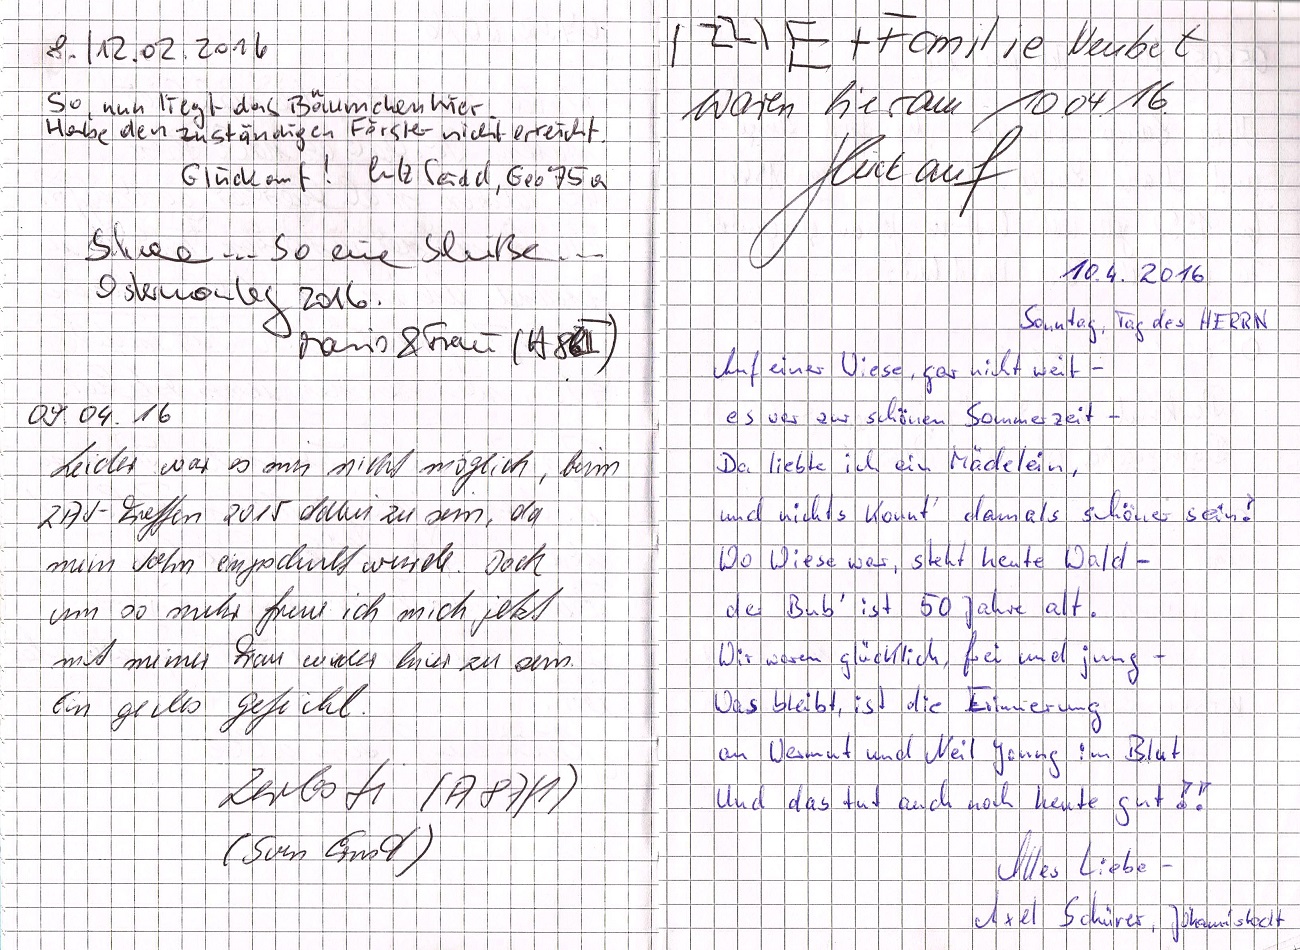 8./12.02.2016
So, nun liegt das Bäumchen hier.
Habe den zuständigen Förster nicht erreicht.
Glückauf! Lutz, Geo 75a
... So eine Scheiße ...
Ostermontag 2016.
& Frau (A
09.04.16
Leider war es mir nicht möglich, beim
ZAJ-Treffen 2015 dabei zu sein, da
mein Sohn eingeschult wurde. Doch
um so mehr freue ich mich jetzt
mit meiner Frau wieder hier zu sein.
Ein geiles Gefühl.
(A 87/1)
(Sven Ernst)
E + Familie Neubert
waren hier am 10.04.16.
Glück auf
10.4. 2016
Sonntag, Tag des HERRN
Auf einer Wiese, gar nicht weit -
es war zur schönen Sommerzeit -
Da liebte ich ein Mädelein,
und nichts konnt' damals schöner sein!
Wo Wiese war, steht heute Wald -
der Bub' ist 50 Jahre alt.
Wir waren glücklich, frei und jung -
Was bleibt, ist die Erinnerung
an Wermut und Neil Young im Blut
Und das tut auch noch heute gut!!
Alles Liebe -
Axel Schürer, Johannstadt